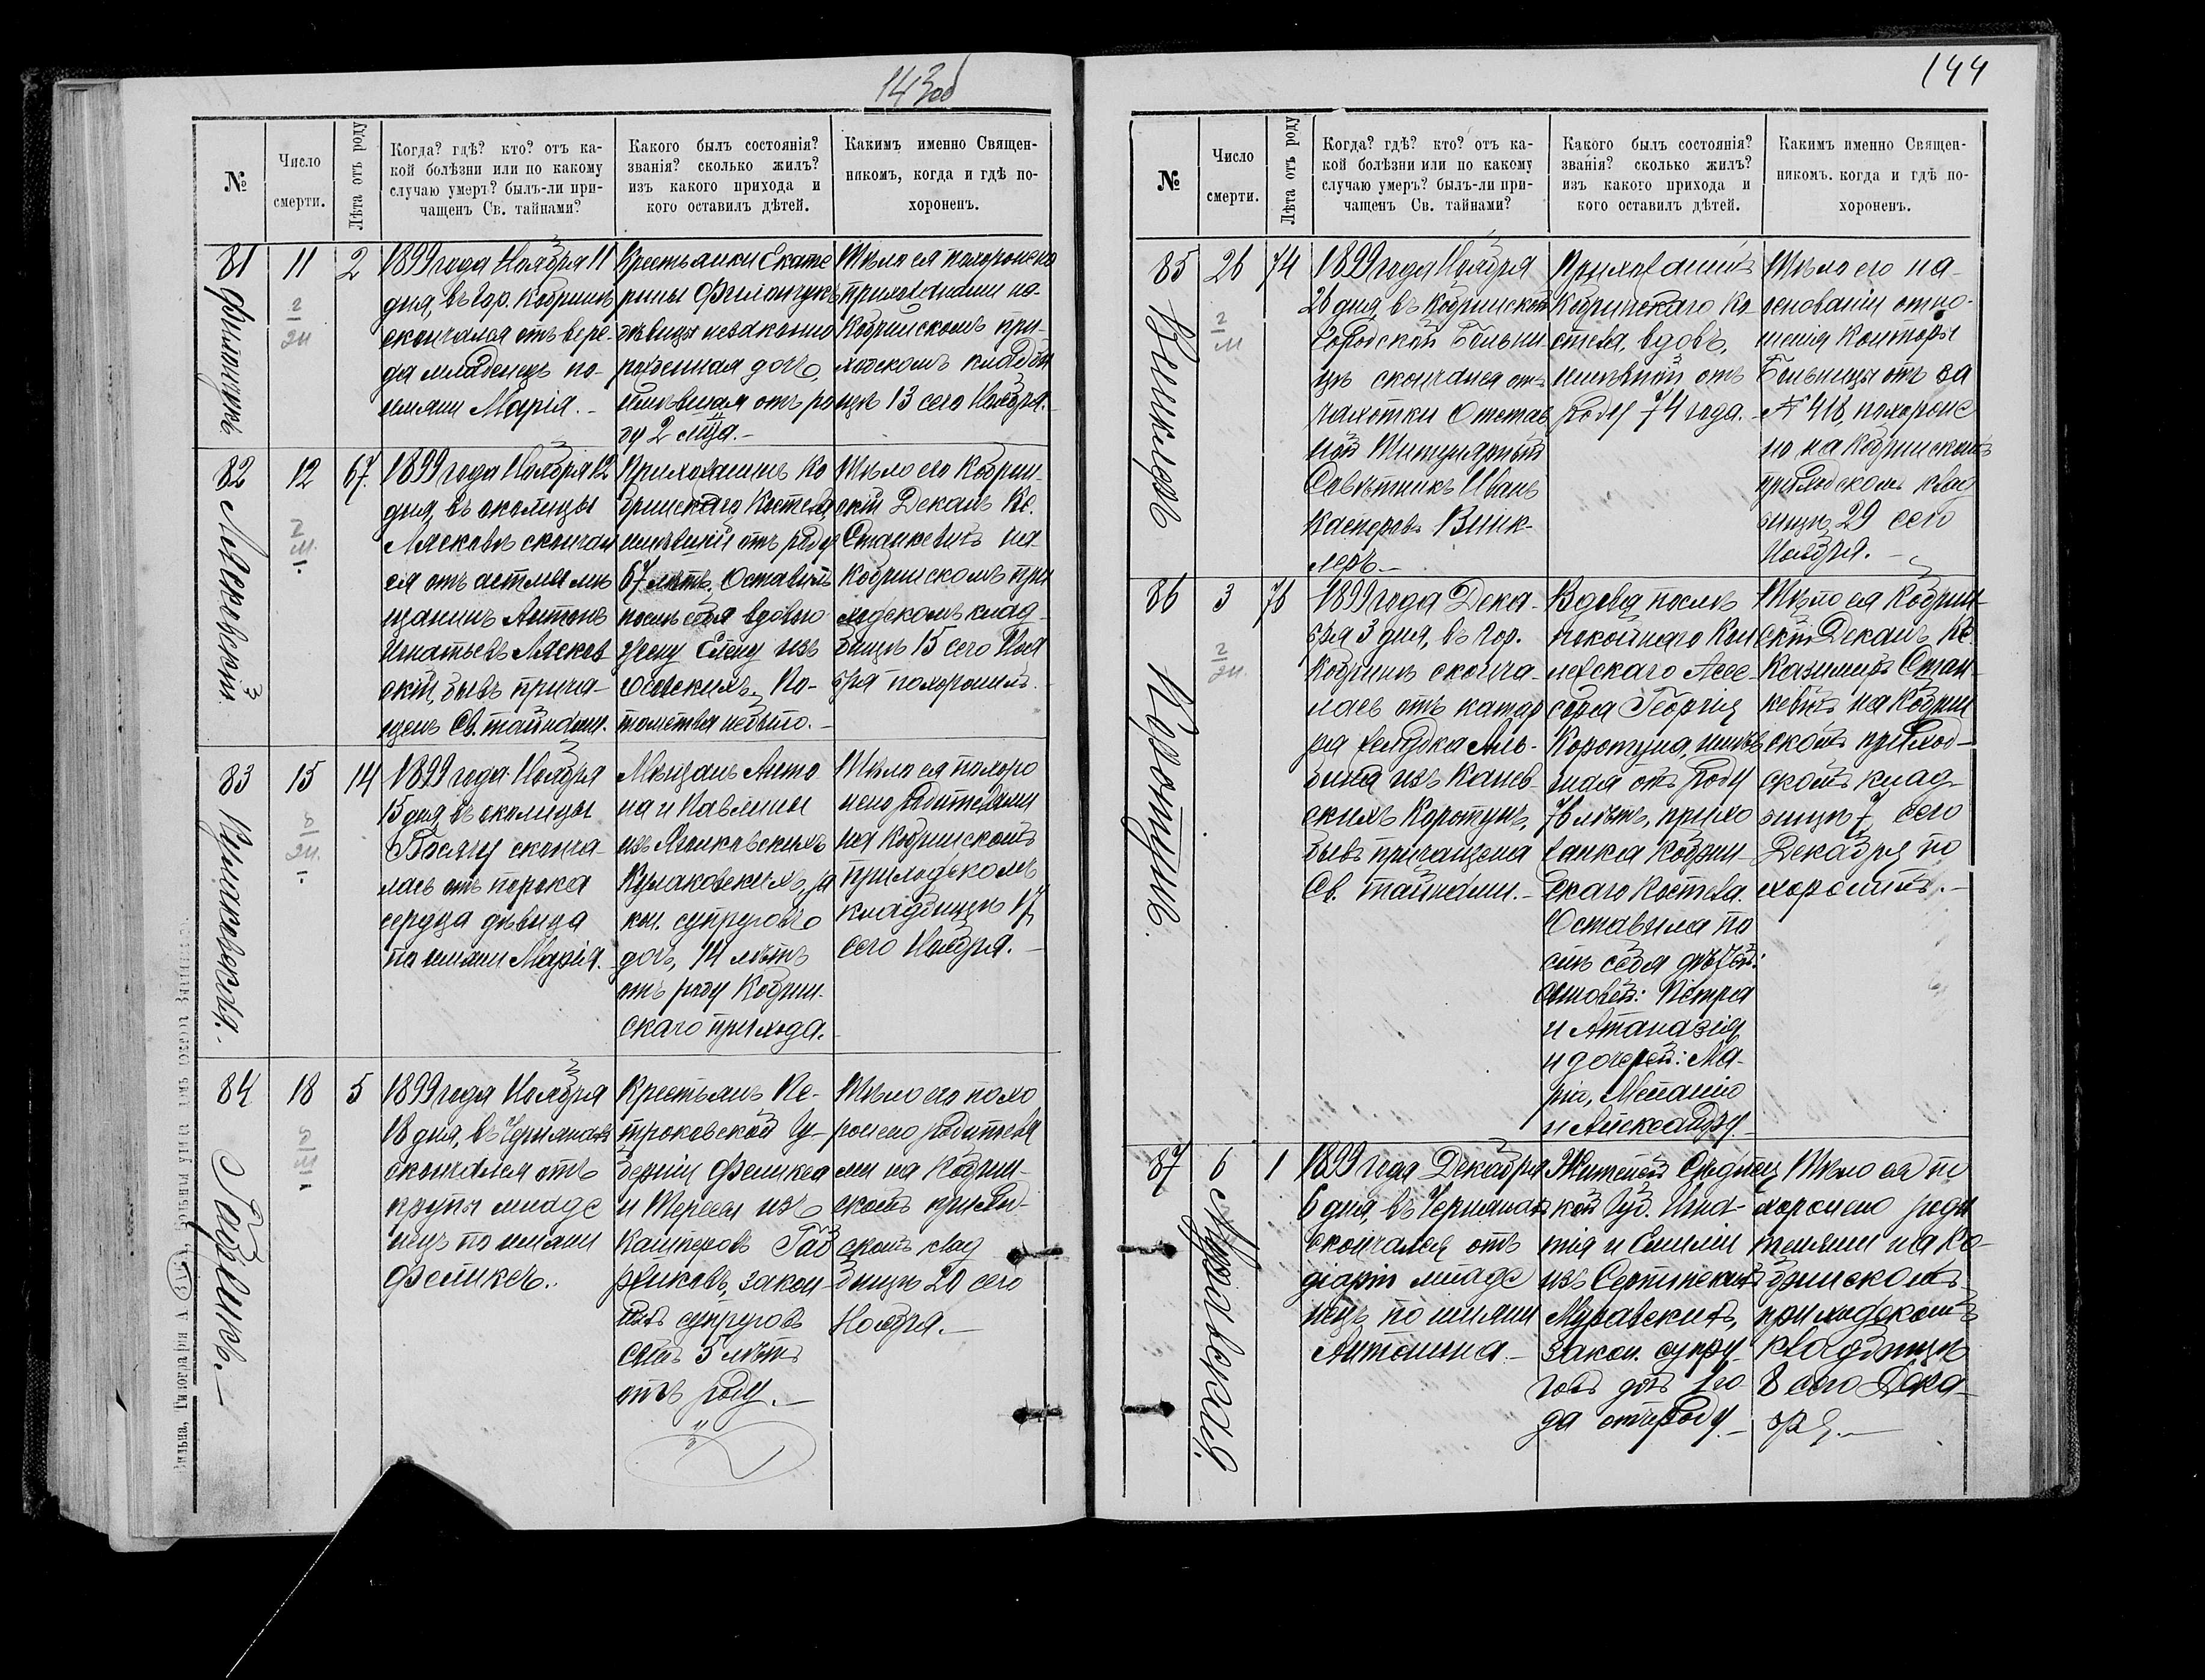 143об
№
Число
смерти.
Лѣта отъ роду
Когда? гдѣ? кто? отъ ка-
кой болѣзни или по какому
случаю умеръ? былъ-ли при-
чащенъ Св. тайнами?
Какого былъ состоянія?
званія? сколько жилъ?
изъ какого прихода и
кого оставилъ дѣтей.
Какимъ именно Священ-
никомъ, когда и гдѣ по-
хороненъ.
81
Филипчукъ
11
2
1899 года Ноября 11
дня, въ гор. Кобринѣ
скончался отъ вере-
да младенецъ по
имени Марія.-
Крестьянки Екате
рины Филипчукъ
дѣвицы незаконно
рожденная дочь,
имѣвшая отъ ро
ду 2 мца.-
Тѣло ея похоронено
прихожанами на
Кобринскомъ при-
ходскомъ кладби
щѣ 13 сего Ноября.-
82
Лясковскій
12
67
1899 года Ноября 12
дня, въ околицы
Лясковъ сконча
ся отъ астмы мѣ
щанинъ Антонъ
Игнатьевъ Лясков
скій, бывъ прича-
щенъ Св. тайнами.
Прихожанинъ Ко
бринскаго Костела
имѣвшій отъ роду
67 лѣтъ. Оставилъ
послѣ себя вдовью
жену Елену изъ
По-
томства небыло.-
Тѣло его Кобрин-
скій Деканъ Кс.
Станкевичъ на
Кобринскомъ при
ходскомъ клад-
бищѣ 15 сего Ноя
бря похоронилъ.-
83
Кулаковская.
15
14
1899 года Ноября
15 дня, въ околицы
сконча-
лась отъ порока
сердца дѣвица
по имени Марія.
Мѣщанъ Анто
на и Павлины
изъ
Кулаковскихъ, за
кон. супруговъ
дочь, 14 лѣтъ
отъ роду Кобрин-
скаго прихода.-
Тѣло ея похоро
нено родителями
на Кобринскомъ
приходскомъ
кладбищѣ 17
сего Ноября.-
84
18
5
1899 года Ноября
18 дня, въ
скончался отъ
крупы младе
нецъ по имени
Феликсъ.
Крестьянъ Пе-
троковской гу-
берніи Феликса
и Тересы изъ
закон-
ныхъ супруговъ
сынъ 5 лѣтъ
отъ роду.-
Тѣло его похо
ронено родителя
ми на Кобрин-
скомъ приход-
скомъ клад
бищѣ 20 сего
Ноября.-
144
№
Число
смерти.
Лѣта отъ роду
Когда? гдѣ? кто? отъ ка-
кой болѣзни или по какому
случаю умеръ? былъ-ли при-
чащенъ Св. тайнами?
Какого былъ состоянія?
званія? сколько жилъ?
изъ какого прихода и
кого оставилъ дѣтей.
Какимъ именно Священ-
никомъ. когда и гдѣ по-
хороненъ.
85
Винклеръ
26
74
1899 года Ноября
26 дня, въ Кобринской
Городской Больни
цѣ скончался отъ
чахотки Отстав
ной Титулярный
Совѣтникъ Иванъ
Касперовъ Винк-
леръ.-
Прихожанинъ
Кобринскаго Ко-
стела, вдовъ,
имѣвшій отъ
роду 74 года.-
Тѣло его на
основаніи отно-
шенія Конторы
Больницы отъ за
№ 418, похороне
но на Кобринскомъ
приходскомъ клад
бищѣ 29 сего
Ноября.-
86
Коротунъ.
3
76
1899 года Дека-
бря 3 дня, въ гор.
Кобринѣ сконча-
лась отъ катар
ра желудка Аль-
бина изъ Канев-
скихъ Коротунъ,
бывъ причащена
Св. тайнами.-
Вдова послѣ
покойнаго Кол
лежскаго Асес-
сора Георгія
Коротуна, имѣв
шая отъ роду
76 лѣтъ, прихо
жанка Кобрин-
скаго Костела.
Оставила по
слѣ себя дѣтей:
сыновей: Петра
и Атаназія
и дочерей: Ма-
рію, Меланію
и Александру.
Тѣло ея Кобрин-
скій Деканъ Кс.
Казимиръ Стан-
кевичъ на Кобрин
скомъ приход-
скомъ клад-
бищѣ 7 сего
Декабря по
хоронилъ.-
87
Муравская.
6
1
1899 года Декабря
6 дня, въ
скончался отъ
діаріи младе
нецъ по имени
Антонина.-
Жителей Сѣдлец
кой Губ. Игна-
тія и Емиліи
изъ
Муравскихъ,
закон. супру-
говъ дочь 1 го-
да отъ роду.-
Тѣло ея по
хоронено роди
телями на Ко-
бринскомъ
приходскомъ
кладбищѣ
8 сего Дека-
бря.-